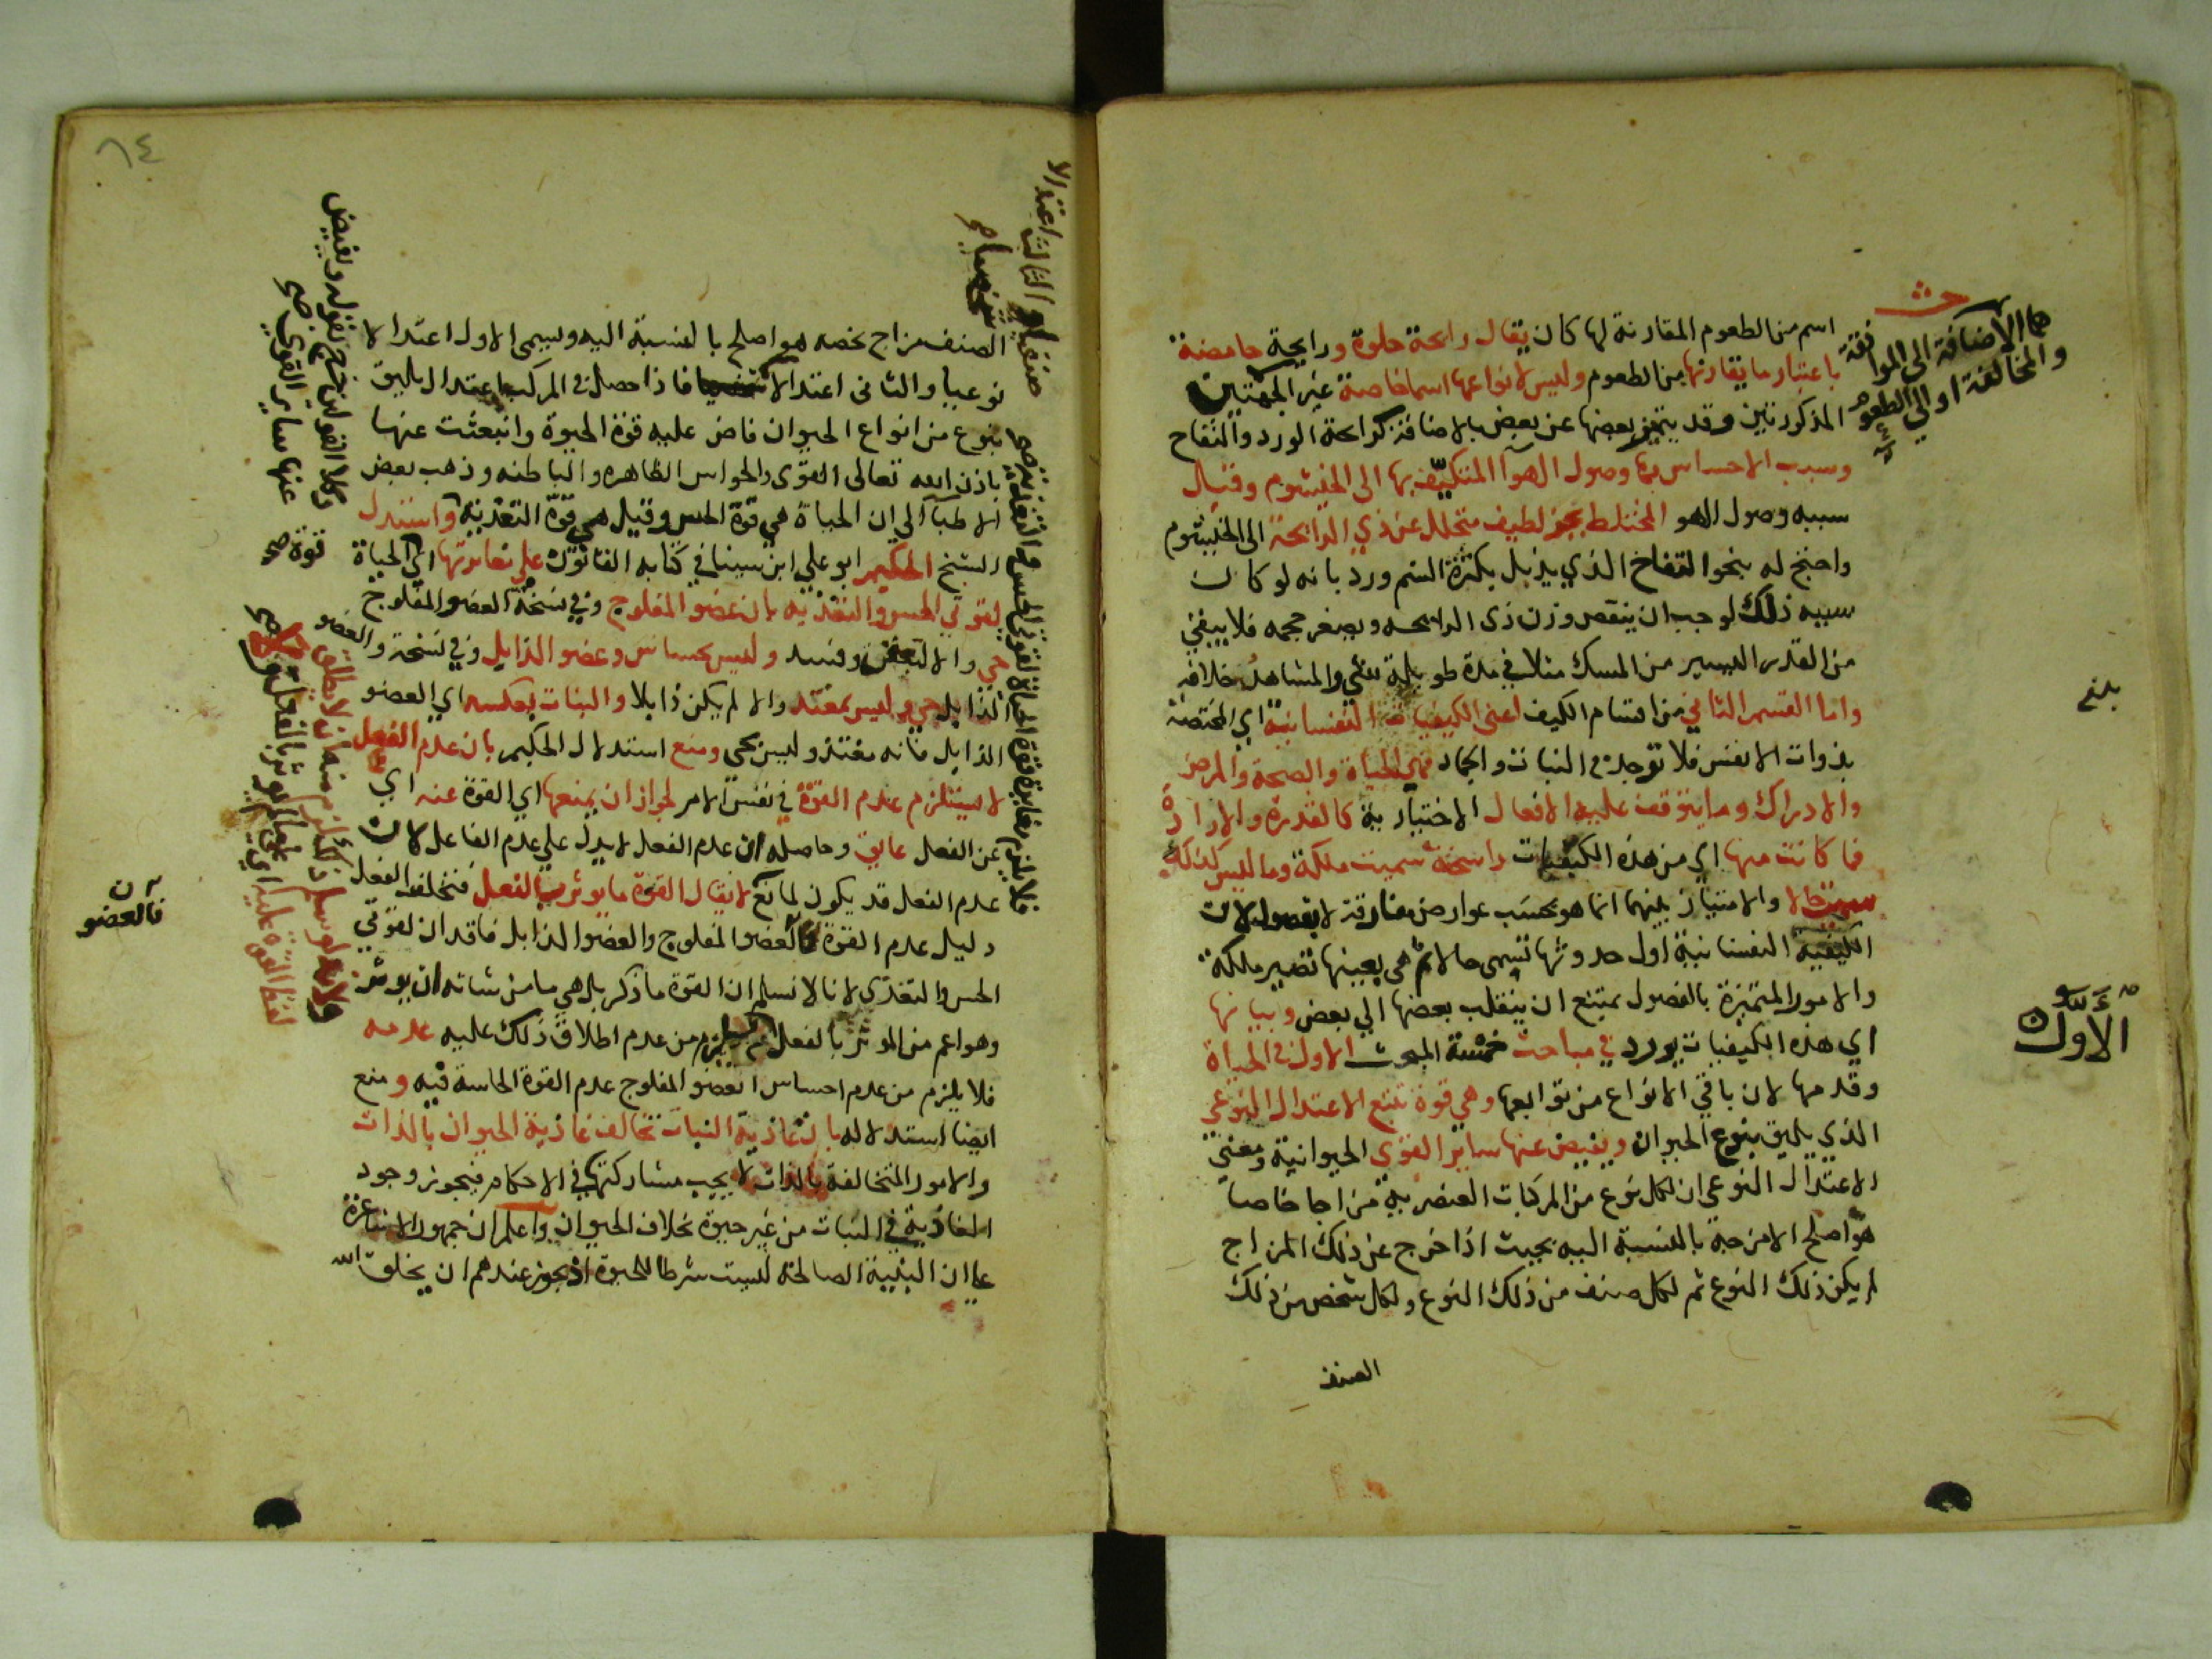 اسم من الطعوم المقارنة لها كان يقال رائحة حلوة ورايحة حامضة
باعتبار ما يقارنها من الطعوم وليس لانواعها اسما خاصة غير الجهتين
المذكورتين وقد يتميز بعضها عن بعض بالاضافة كرائحة الورد والتفاح
وسبب الاحساس بها وصول الهوآ المتكيّف بها الى الخيشوم وقيل
سببه وصول الهو المختلط بجز لطيف متحلل عن ذي الرايحة الى الخيشوم
واحتج له بنحو التفاح الذي يذبل بكثرة الشم ورد بانه لو كان
سببه ذلك لوجب ان ينقص وزن ذى الرايحه ويصغر حجمه فلا يبقى
من القدر اليسير من المسك مثلا في مدة طويلة شي والمشاهد خلافه
واما القسم الثاني من اقسام الكيف اعني الكيفيات النفسانية اي المختصة
بذوات الانفس فلا توجد في النبات والجماد فهي الحياة والصحة والمرض
والادراك وما يتوقف عليه الافعال الاختيارية كالقدرة والارادة
فما كانت منها اي من هذه الكيفيات راسخة سميت ملكة وما ليس كذلك
سميت حالا والامتياز بينهما انما هو بحسب عوارض مفارقة لا بفصول لان
الكيفية النفسانية اول حدوثها تسمى حالا ثم هي بعينها تصير ملكة
والامور المتميزة بالفصول يمتنع ان ينقلب بعضها الي بعض وبيانها
اي هذه الكيفيات يورد في مباحث خمسة المبحث الاول في الحياة
وقدمها لان باقي الانواع من توابعها وهي قوة تتبع الاعتدال النوعي
الذي يليق بنوع الحيوان ويفيض عنها ساير القوى الحيوانية ومعنى
الاعتدال النوعي ان لكل نوع من المركبات العنصرية مزاجا خاصا
هو اصلح الامزجة بالنسبة اليه بحيث اذا خرج عن ذلك المزاج
لم يكن ذلك النوع ثم لكل صنف من ذلك النوع ولكل شخص من ذلك
الصنف
هما الاضافة الى الموافقة
والمخالفة او الي الطعوم
بلغ
الاول
٦٤
الصنف مزاج يخصه هو اصلح بالنسبة اليه ويسمى الاول اعتدالا
نوعيا والثانى اعتدالا فاذا حصل في المركب اعتدال يليق
بنوع من انواع الحيوان فاض عليه قوة الحيوة وانبعثت عنها
باذن الله تعالى القوى والحواس الظاهره والباطنه وذهب بعض
الاطبآ الي ان الحياة هي قوة الحس وقيل هي قوة التغذية واستدل
الشيخ الحكيم ابو علي ابن سينا في كتابه القانون علي مغايرتها اي الحياة
لقوتي الحس والتغذيه بان عضو المفلوج وفي نسخة العضو المفلوج
حي والا لتعفن وفسد وليس بحساس وعضو الذابل وفي نسخة والعضو
الذابل حي وليس بمغتذ والا لم يكن ذابلا والنبات بعكسه اي العضو
الذابل فانه مغتذ وليس بحى ومنع استدلال الحكيم بان عدم الفعل
لا يستلزم عدم القوة في نفس الامر لجواز ان يمنعها اي القوة عنه اي
عن الفعل عايق وحاصله ان عدم الفعل لا يدل علي عدم الفاعل لان
عدم الفعل قد يكون لمانع لا يقال القوة ما يوثر بالفعل فتخلف الفعل
دليل عدم القوة فالعضو المفلوج والعضو الذابل فاقدان لقوتي
الحس والتغذي لانا لا نسلم ان القوة ما ذكر بل هي ما من شانه ان يوثر
وهو اعم من الموثر بالفعل من عدم اطلاق ذلك عليه عدمه
فلا يلزم من عدم احساس العضو المفلوج عدم القوة الحاسة فيه ومنع
ايضا استدلاله بان غاذية النبات تخالف غاذية الحيوان بالذات
والامور المتخالفة بالذات لا يجب مشاركتها في الاحكام فيجوز وجود
الغاذية في النبات من غير حيوة بخلاف الحيوان واعلم ان جمهور الاشاعرة
علي ان البنية الصالحة ليست شرطا للحيوة اذ يجوز عندهم ان يخلق الله
صنفيا والثالث اعتدالا
شخصيا صح
فلا يلزم مغايرة قوة الحياة لقوتي الحس والتغذية صح
وكلا القولين خرج بقوله ويفيض
عنها ساير القوي صح
قوة صح
فالعضو